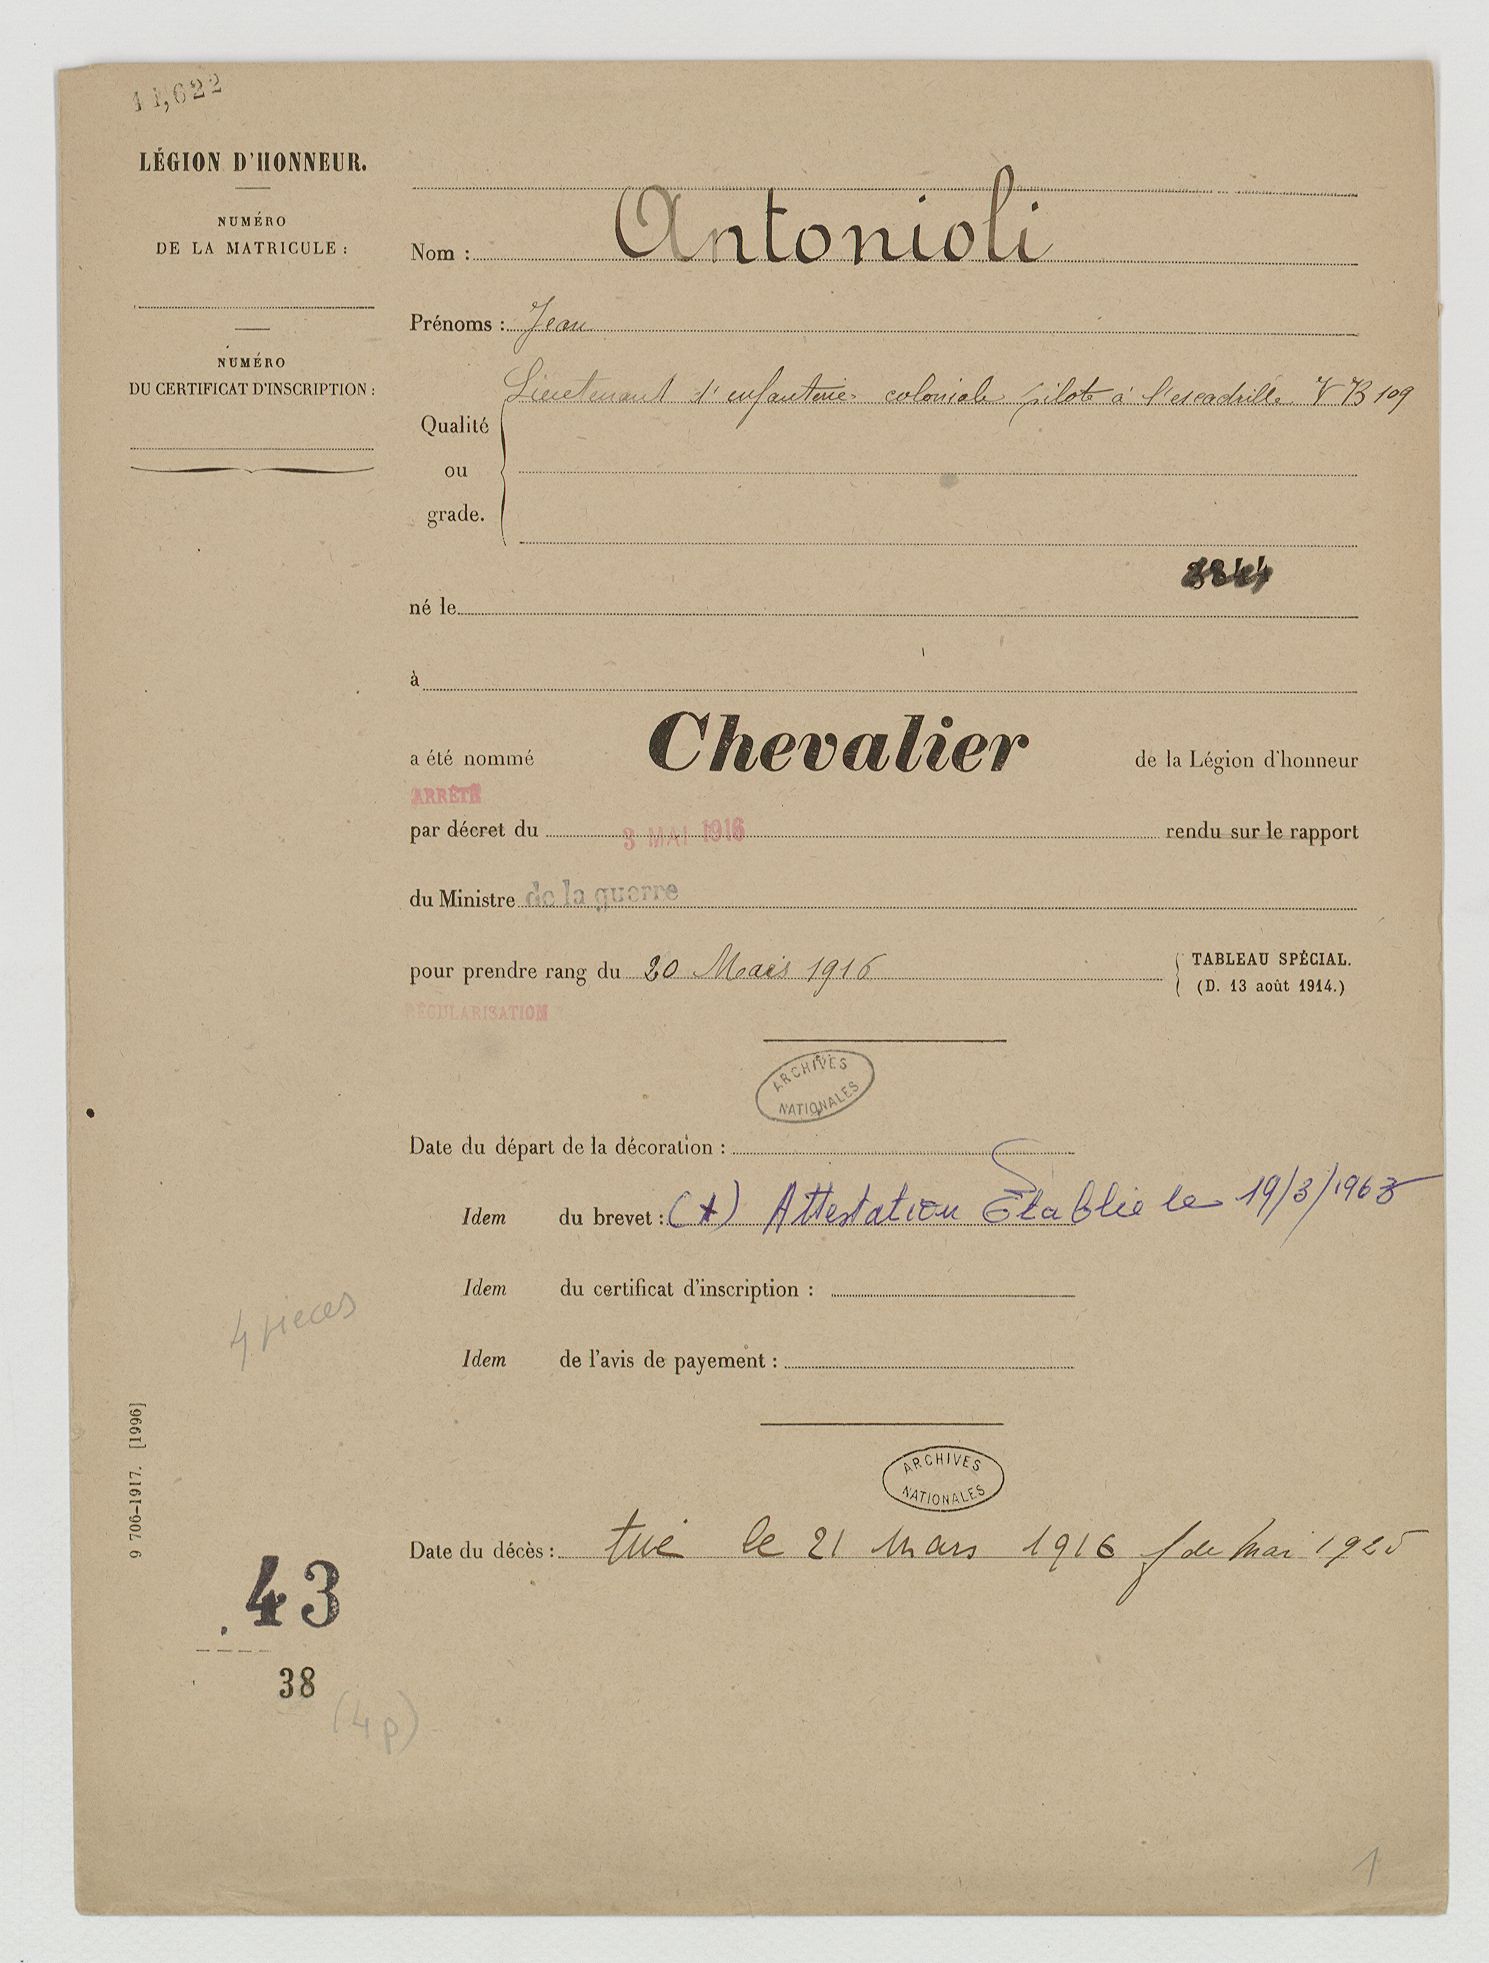 11,622
LÉGION D'HONNEUR.
NUMÉRO
DE LA MATRICULE :
NUMÉRO
DU CERTIFICAT D'INSCRIPTION :
Nom : Antonioli
Prénoms : Jean
Lieutenant d'infanterie coloniale pilote à l'escadrille VB 109
Qualité
ou
grade.
né le
à
a été nommé Chevalier de la Légion d'honneur
ARRÊTÉ
par décret du 3 MAI 1916 rendu sur le rapport
du Ministre de la guerre
pour prendre rang du 20 Mars 1916
TABLEAU SPÉCIAL.
(D. 13 août 1914.)
RÉGULARISATION
ARCHIVES
NATIONALES
Date du départ de la décoration :
Idem du brevet : (+) Attestation Etablie le 19/3/1963
Idem du certificat d'inscription :
Idem de l'avis de payement :
4 pieces
9 706-1917. [1996]
ARCHIVES
NATIONALES
Date du décès : tué le 21 mars 1916 f de mai 1925
43
38
(4p)
1